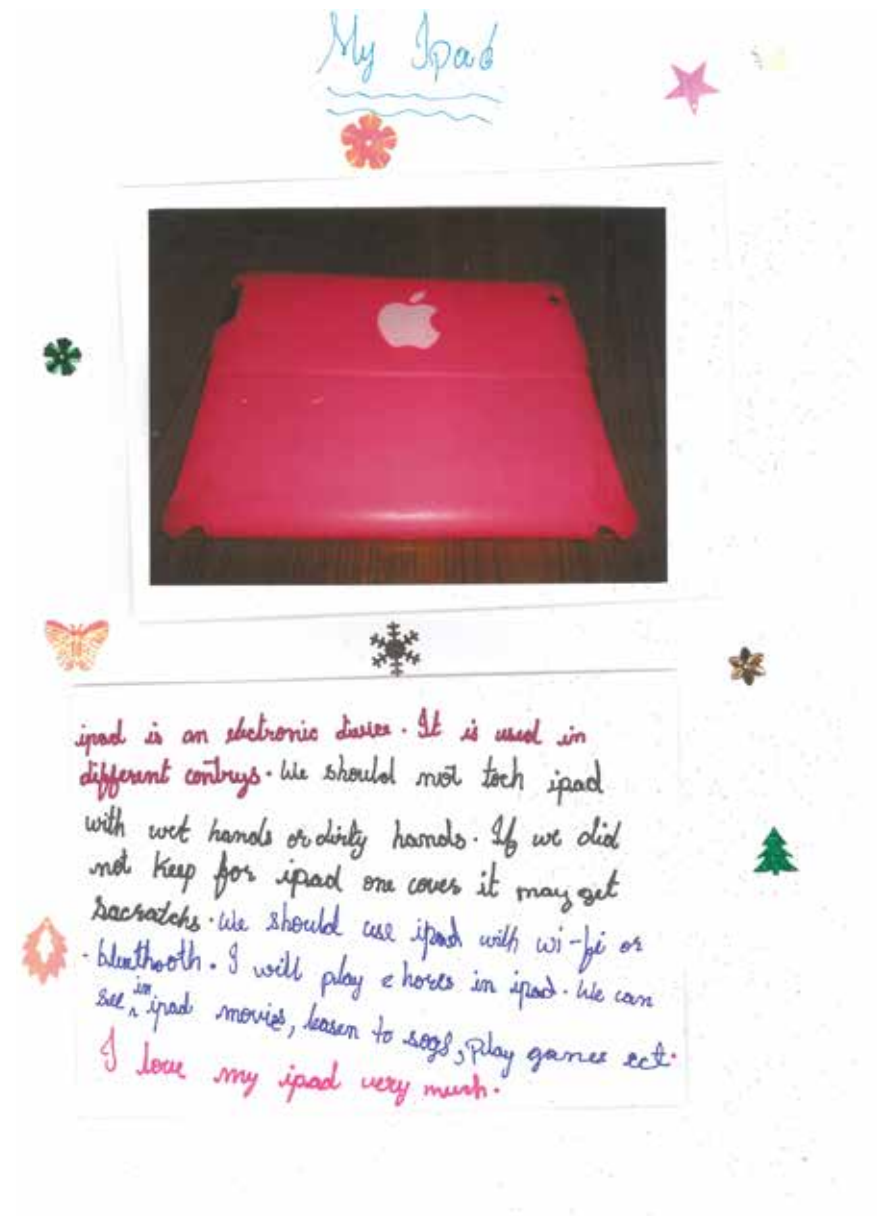 My Ipad
ipad is an electronic divice. It is used in
different contrys. We should not toch ipad
with wet hands or dirty hands. If we did
not keep for ipad one cover it may get
sacratchs. We should use ipad with wi-fi or
bluethooth. I will play 2 hores in ipad. We can
see in ipad movies, leasen to sogs, play games ect.
I love my ipad very much.